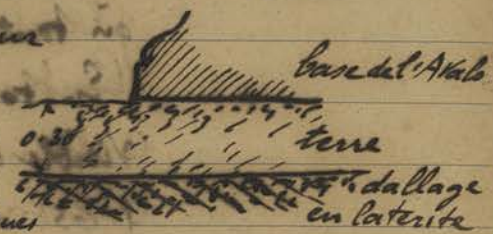 base de l'Avalo
0.30
terre
dallage
en laterite